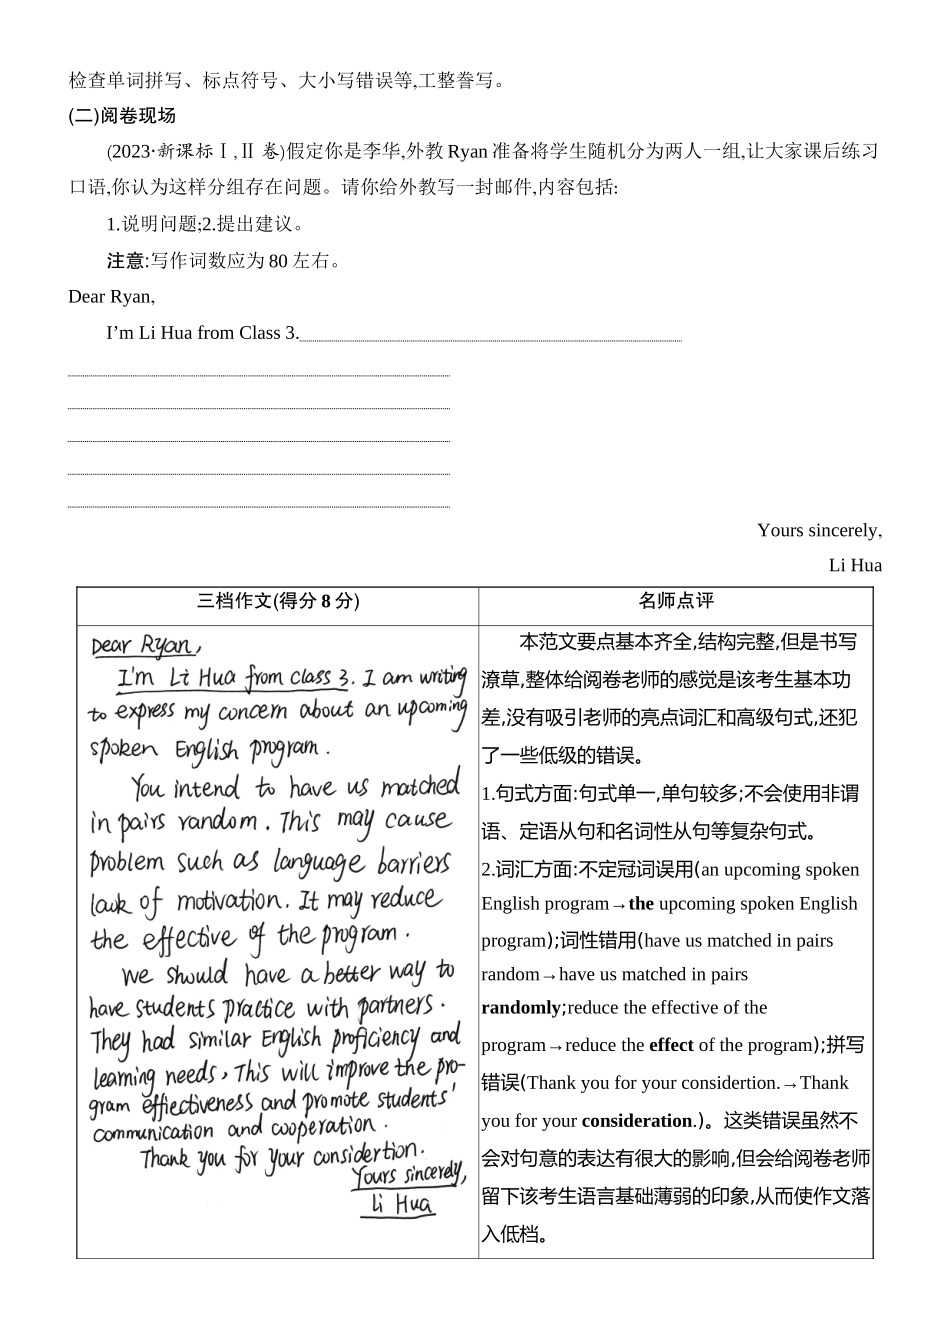 检查单词拼写、标点符号、大小写错误等,工整誊写。
(二)阅卷现场
(2023·新课标Ⅰ,Ⅱ 卷)假定你是李华,外教 Ryan 准备将学生随机分为两人一组,让大家课后练习
口语,你认为这样分组存在问题。请你给外教写一封邮件,内容包括:
1.说明问题;2.提出建议。
注意:写作词数应为 80 左右。
Dear Ryan,
I’m Li Hua from Class 3.
Yours sincerely,
Li Hua
三档作文(得分 8 分)
Dear Ryan,
I'm Li Hua from class 3. I am writing
to express my concern about an upcoming
spoken English program.
You intend to have us matched
in pairs random. This may cause
problem such as language barriers
lack of motivation. It may reduce
the effective of the program.
We should have a better way to
have students practice with partners.
They had similar English proficiency and
learning needs, This will improve the pro-
gram effectiveness and promote students'
communication and cooperation.
Thank you for your considertion.
Yours sincerely,
Li Hua
名师点评
本范文要点基本齐全,结构完整,但是书写
潦草,整体给阅卷老师的感觉是该考生基本功
差,没有吸引老师的亮点词汇和高级句式,还犯
了一些低级的错误。
1.句式方面:句式单一,单句较多;不会使用非谓
语、定语从句和名词性从句等复杂句式。
2.词汇方面:不定冠词误用(an upcoming spoken
English program→the upcoming spoken English
program);词性错用(have us matched in pairs
random→have us matched in pairs
randomly;reduce the effective of the
program→reduce the effect of the program);拼写
错误(Thank you for your considertion.→Thank
you for your consideration.)。这类错误虽然不
会对句意的表达有很大的影响,但会给阅卷老师
留下该考生语言基础薄弱的印象,从而使作文落
入低档。